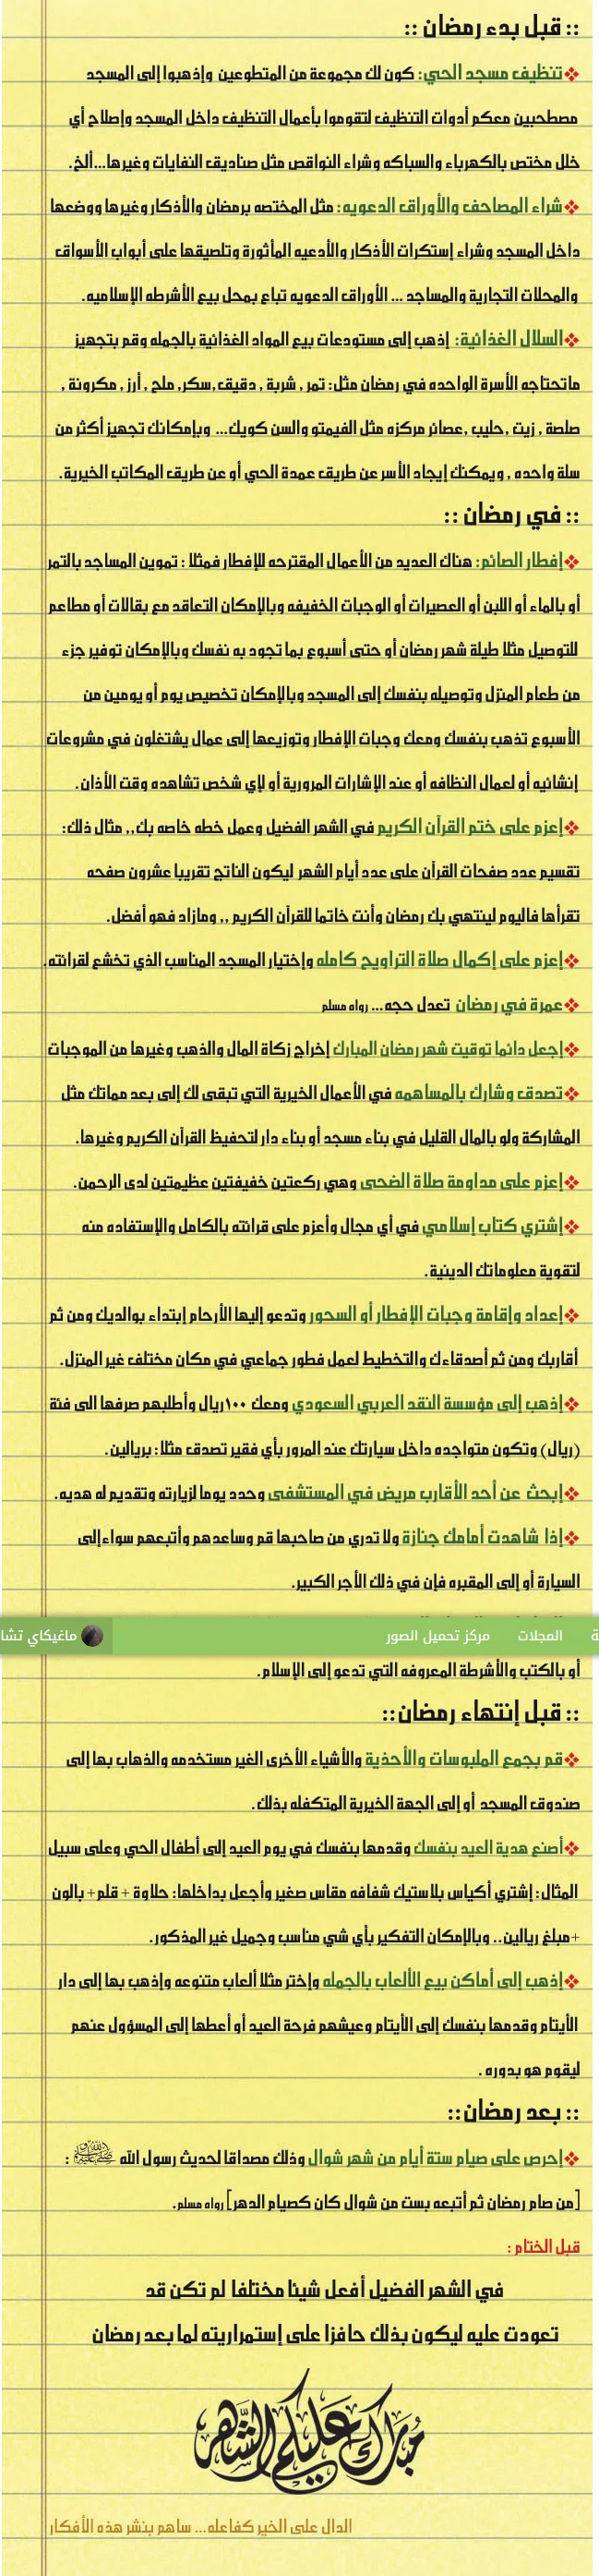 :: قبل بدء رمضان ::
❖تنظيف مسجد الحي: كون لك مجموعة من المتطوعين وإذهبوا إلى المسجد
مصطحبين معكم أدوات التنظيف لتقوموا بأعمال التنظيف داخل المسجد وإصلاح أي
خلل مختص بالكهرباء والسباكه وشراء النواقص مثل صناديق النفايات وغيرها...ألخ.
❖شراء المصاحف والأوراق الدعويه: مثل المختصه برمضان والأذكار وغيرها ووضعها
داخل المسجد وشراء إستكرات الأذكار والأدعيه المأثورة وتلصيقها على أبواب الأسواق
والمحلات التجارية والمساجد ... الأوراق الدعويه تباع بمحل بيع الأشرطه الإسلاميه.
❖السلال الغذائية: إذهب إلى مستودعات بيع المواد الغذائية بالجمله وقم بتجهيز
ماتحتاجه الأسرة الواحده في رمضان مثل: تمر , شربة , دقيق,سكر, ملح , أرز , مكرونة ,
صلصة , زيت ,حليب ,عصائر مركزه مثل الفيمتو والسن كويك... وبإمكانك تجهيز أكثر من
سلة واحده , ويمكنك إيجاد الأسر عن طريق عمدة الحي أو عن طريق المكاتب الخيرية.
:: في رمضان ::
❖إفطار الصائم: هناك العديد من الأعمال المقترحه للإفطار فمثلا : تموين المساجد بالتمر
أو بالماء أو اللبن أو العصيرات أو الوجبات الخفيفه وبالإمكان التعاقد مع بقالات أو مطاعم
للتوصيل مثلا طيلة شهر رمضان أو حتى أسبوع بما تجود به نفسك وبالإمكان توفير جزء
من طعام المنزل وتوصيله بنفسك إلى المسجد وبالإمكان تخصيص يوم أو يومين من
الأسبوع تذهب بنفسك ومعك وجبات الإفطار وتوزيعها إلى عمال يشتغلون في مشروعات
إنشائيه أو لعمال النظافه أو عند الإشارات المرورية أو لإي شخص تشاهده وقت الأذان.
❖إعزم على ختم القرآن الكريم في الشهر الفضيل وعمل خطه خاصه بك,, مثال ذلك:
تقسيم عدد صفحات القرآن على عدد أيام الشهر ليكون الناتج تقريبا عشرون صفحه
تقرأها فاليوم لينتهي بك رمضان وأنت خاتما للقرآن الكريم ,, ومازاد فهو أفضل.
❖إعزم على إكمال صلاة التراويح كامله وإختيار المسجد المناسب الذي تخشع لقرائته.
❖عمرة في رمضان تعدل حجه... رواه مسلم
❖إجعل دائما توقيت شهر رمضان المبارك إخراج زكاة المال والذهب وغيرها من الموجبات
❖تصدق وشارك بالمساهمه في الأعمال الخيرية التي تبقى لك إلى بعد مماتك مثل
المشاركة ولو بالمال القليل في بناء مسجد أو بناء دار لتحفيظ القرآن الكريم وغيرها.
❖إعزم على مداومة صلاة الضحى وهي ركعتين خفيفتين عظيمتين لدى الرحمن.
❖إشتري كتاب إسلامي في أي مجال وأعزم على قرائته بالكامل والإستفاده منه
لتقوية معلوماتك الدينية.
❖إعداد وإقامة وجبات الإفطار أو السحور وتدعو إليها الأرحام إبتداء بوالديك ومن ثم
أقاربك ومن ثم أصدقاءك والتخطيط لعمل فطور جماعي في مكان مختلف غير المنزل.
❖إذهب إلى مؤسسة النقد العربي السعودي ومعك ١٠٠ريال وأطلبهم صرفها الى فئة
(ريال) وتكون متواجده داخل سيارتك عند المرور بأي فقير تصدق مثلا: بريالين.
❖إبحث عن أحد الأقارب مريض في المستشفى وحدد يوما لزيارته وتقديم له هديه.
❖إذا شاهدت أمامك جنازة ولا تدري من صاحبها قم وساعدهم وأتبعهم سواء إلى
السيارة أو إلى المقبره فإن في ذلك الأجر الكبير.
المجلات مركز تحميل الصور ماغيكاي تشا
أو بالكتب والأشرطة المعروفه التي تدعو إلى الإسلام.
:: قبل إنتهاء رمضان::
❖قم بجمع الملبوسات والأحذية والأشياء الأخرى الغير مستخدمه والذهاب بها إلى
صندوق المسجد أو إلى الجهة الخيرية المتكفله بذلك.
❖أصنع هدية العيد بنفسك وقدمها بنفسك في يوم العيد إلى أطفال الحي وعلى سبيل
المثال: إشتري أكياس بلاستيك شفافه مقاس صغير وأجعل بداخلها: حلاوة + قلم+ بالون
+مبلغ ريالين.. وبالإمكان التفكير بأي شي مناسب وجميل غير المذكور.
❖إذهب إلى أماكن بيع الألعاب بالجمله وإختر مثلا ألعاب متنوعه وإذهب بها إلى دار
الأيتام وقدمها بنفسك إلى الأيتام وعيشهم فرحة العيد أو أعطها إلى المسؤول عنهم
ليقوم هو بدوره .
:: بعد رمضان::
❖إحرص على صيام ستة أيام من شهر شوال وذلك مصداقا لحديث رسول الله ﷺ :
[من صام رمضان ثم أتبعه بست من شوال كان كصيام الدهر] رواه مسلم.
قبل الختام :
في الشهر الفضيل أفعل شيئا مختلفا لم تكن قد
تعودت عليه ليكون بذلك حافزا على إستمراريته لما بعد رمضان
مُبَارَك عَلَيكُم الشَّهر
الدال على الخير كفاعله... ساهم بنشر هذه الأفكار